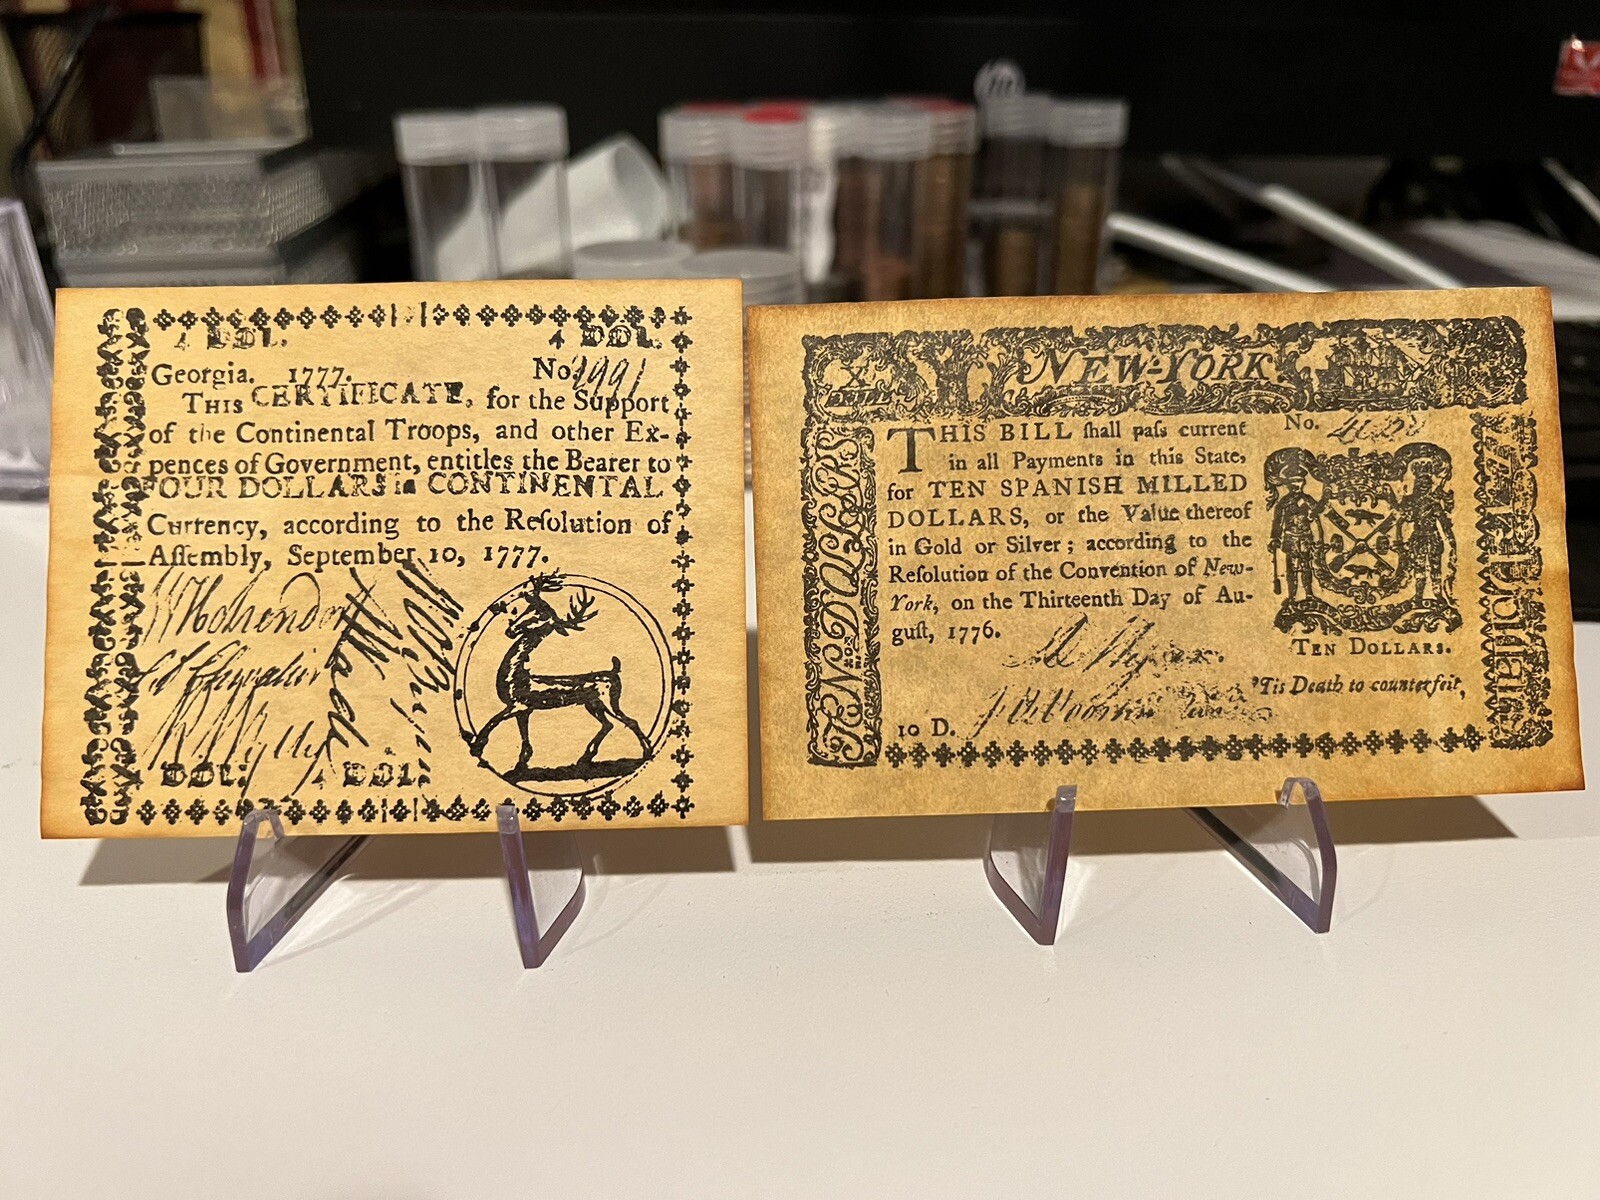 4 DOL.
Georgia. 1777. No 1991
THIS CERTIFICATE, for the Support
of the Continental Troops, and other Ex-
pences of Government, entitles the Bearer to
FOUR DOLLARS in CONTINENTAL
Currency, according to the Reſolution of
Aſſembly, September 10, 1777.
DOL: DOL.
NEW-YORK.
X
No.
THIS BILL ſhall paſs current
in all Payments in this State,
for TEN SPANISH MILLED
DOLLARS, or the Value thereof
in Gold or Silver; according to the
Reſolution of the Convention of New-
York, on the Thirteenth Day of Au-
guſt, 1776.
TEN DOLLARS.
'Tis Death to counterfeit,
10 D.